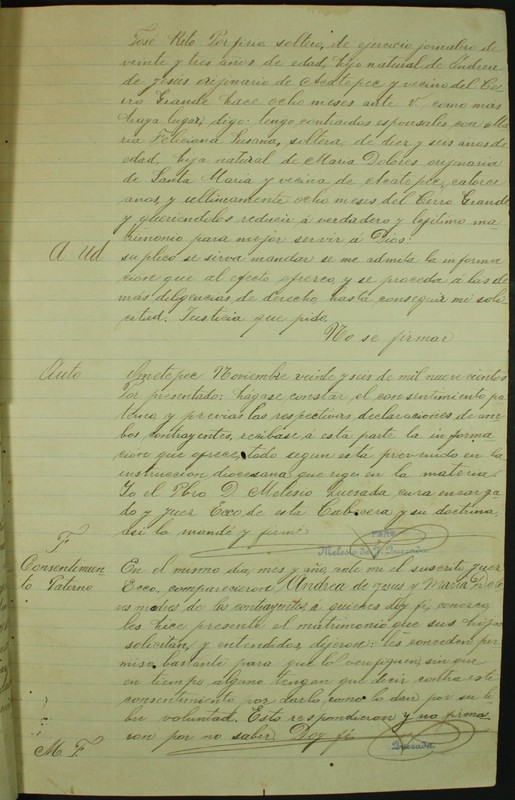 José Rito Porfirio soltero, de ejercicio jornalero de
veinte y tres años de edad, hijo natural de Andrea
de Jesus orijinario de Acatepec y vecino del Ce-
rro Grande hace ocho meses ante V. como mas
haya lugar, digo: tengo contraidos esponsales con Ma
ria Feliciana Susana, soltera, de diez y seis anos de
edad, hija natural de Maria Dolores orijinaria
de Santa Maria y vecina de Acatepec, catorce
anos, y ultimamente ocho meses del Cerro Grande
y queriendolos reducir á verdadero y lejitimo ma-
trimonio para mejor servir á Dios:
A Ud suplico se sirva mandar se me admita la informa
cion que al efecto ofresco, y se proceda á las de
mas diligencias de derecho hasta conseguir mi soli
citud. Justicia que pido.
No se firmar
Auto Ometepec Noviembre veinte y seis de mil nuevecientos
Por presentado: hagase constar el consentimiento pa-
terno y previas las respectivas declaraciones de am-
bos contrayentes, recibase á esta parte la informa
cion que ofrece, todo segun está prevenido en la
instruccion diocesana que rige en la materia.
Yo el Pbro D. Melesio Quesada cura encarga
do y Juez Ecco. de esta Cabecera y su doctrina
asi lo mandé y firmé
PBRO.
Melesio de J. Quesada
F
Consentimien
to Paterno
En el mismo dia, mes y año, ante mi el suscrito Juez
Ecco. comparecieron Andrea de Jesus y Maria Dolo
es madres de los contrayentes, a quienes doy fé, conosco,
les hice presente el matrimonio que sus hijos
solicitan, y entendidos, dijeron: les conceden per
miso bastante para que lo verifiquen, sin que
en tiempo alguno tengan que decir contra este
consentimiento por darlo, como lo dan por su li
bre voluntad. Esto respondieron y no firma-
ron por no saber. Doy fé
Quesada
M. F.